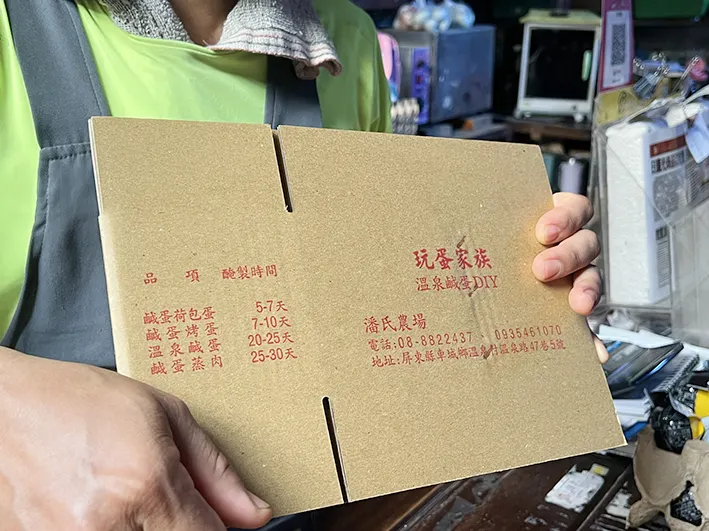 品 項 醃製時間
鹹蛋荷包蛋 5-7天
鹹蛋烤蛋 7-10天
溫泉鹹蛋 20-25天
鹹蛋蒸肉 25-30天
玩蛋家族
溫泉鹹蛋DIY
潘氏農場
電話:08-8822437 0935461070
地址:屏東縣車城鄉溫泉村溫泉路47巷5號